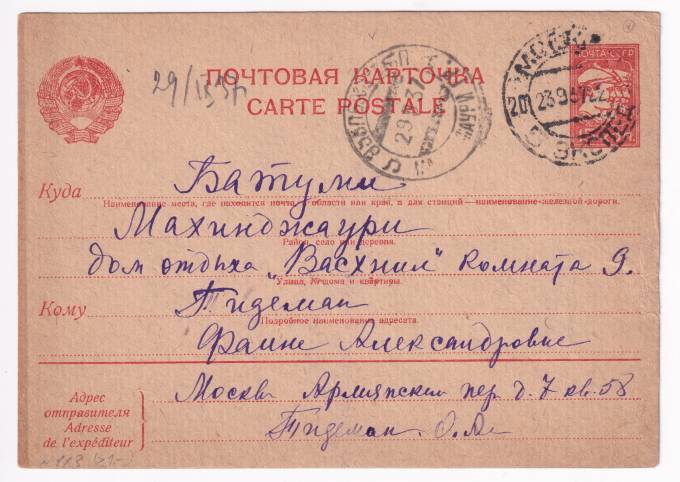 ПОЧТОВАЯ КАРТОЧКА
CARTE POSTALE
29/IX 37
ПОЧТА СССР
МОСКВА
20 23 9 37 22
29 9 37
Куда Батуми
Наименование места, где находится почта, и области или края, а для станций — наименование железной дороги.
Махинджаури
Район, село или деревня.
дом отдыха „Васхнил" комната 9.
Улица, № дома и квартиры.
Кому Тидеман
Подробное наименование адресата.
Фаине Александровне
Адрес
отправителя
Adresse
de l'expéditeur
Москва Армянский пер д. 7 кв. 58
Тидеман О. А.